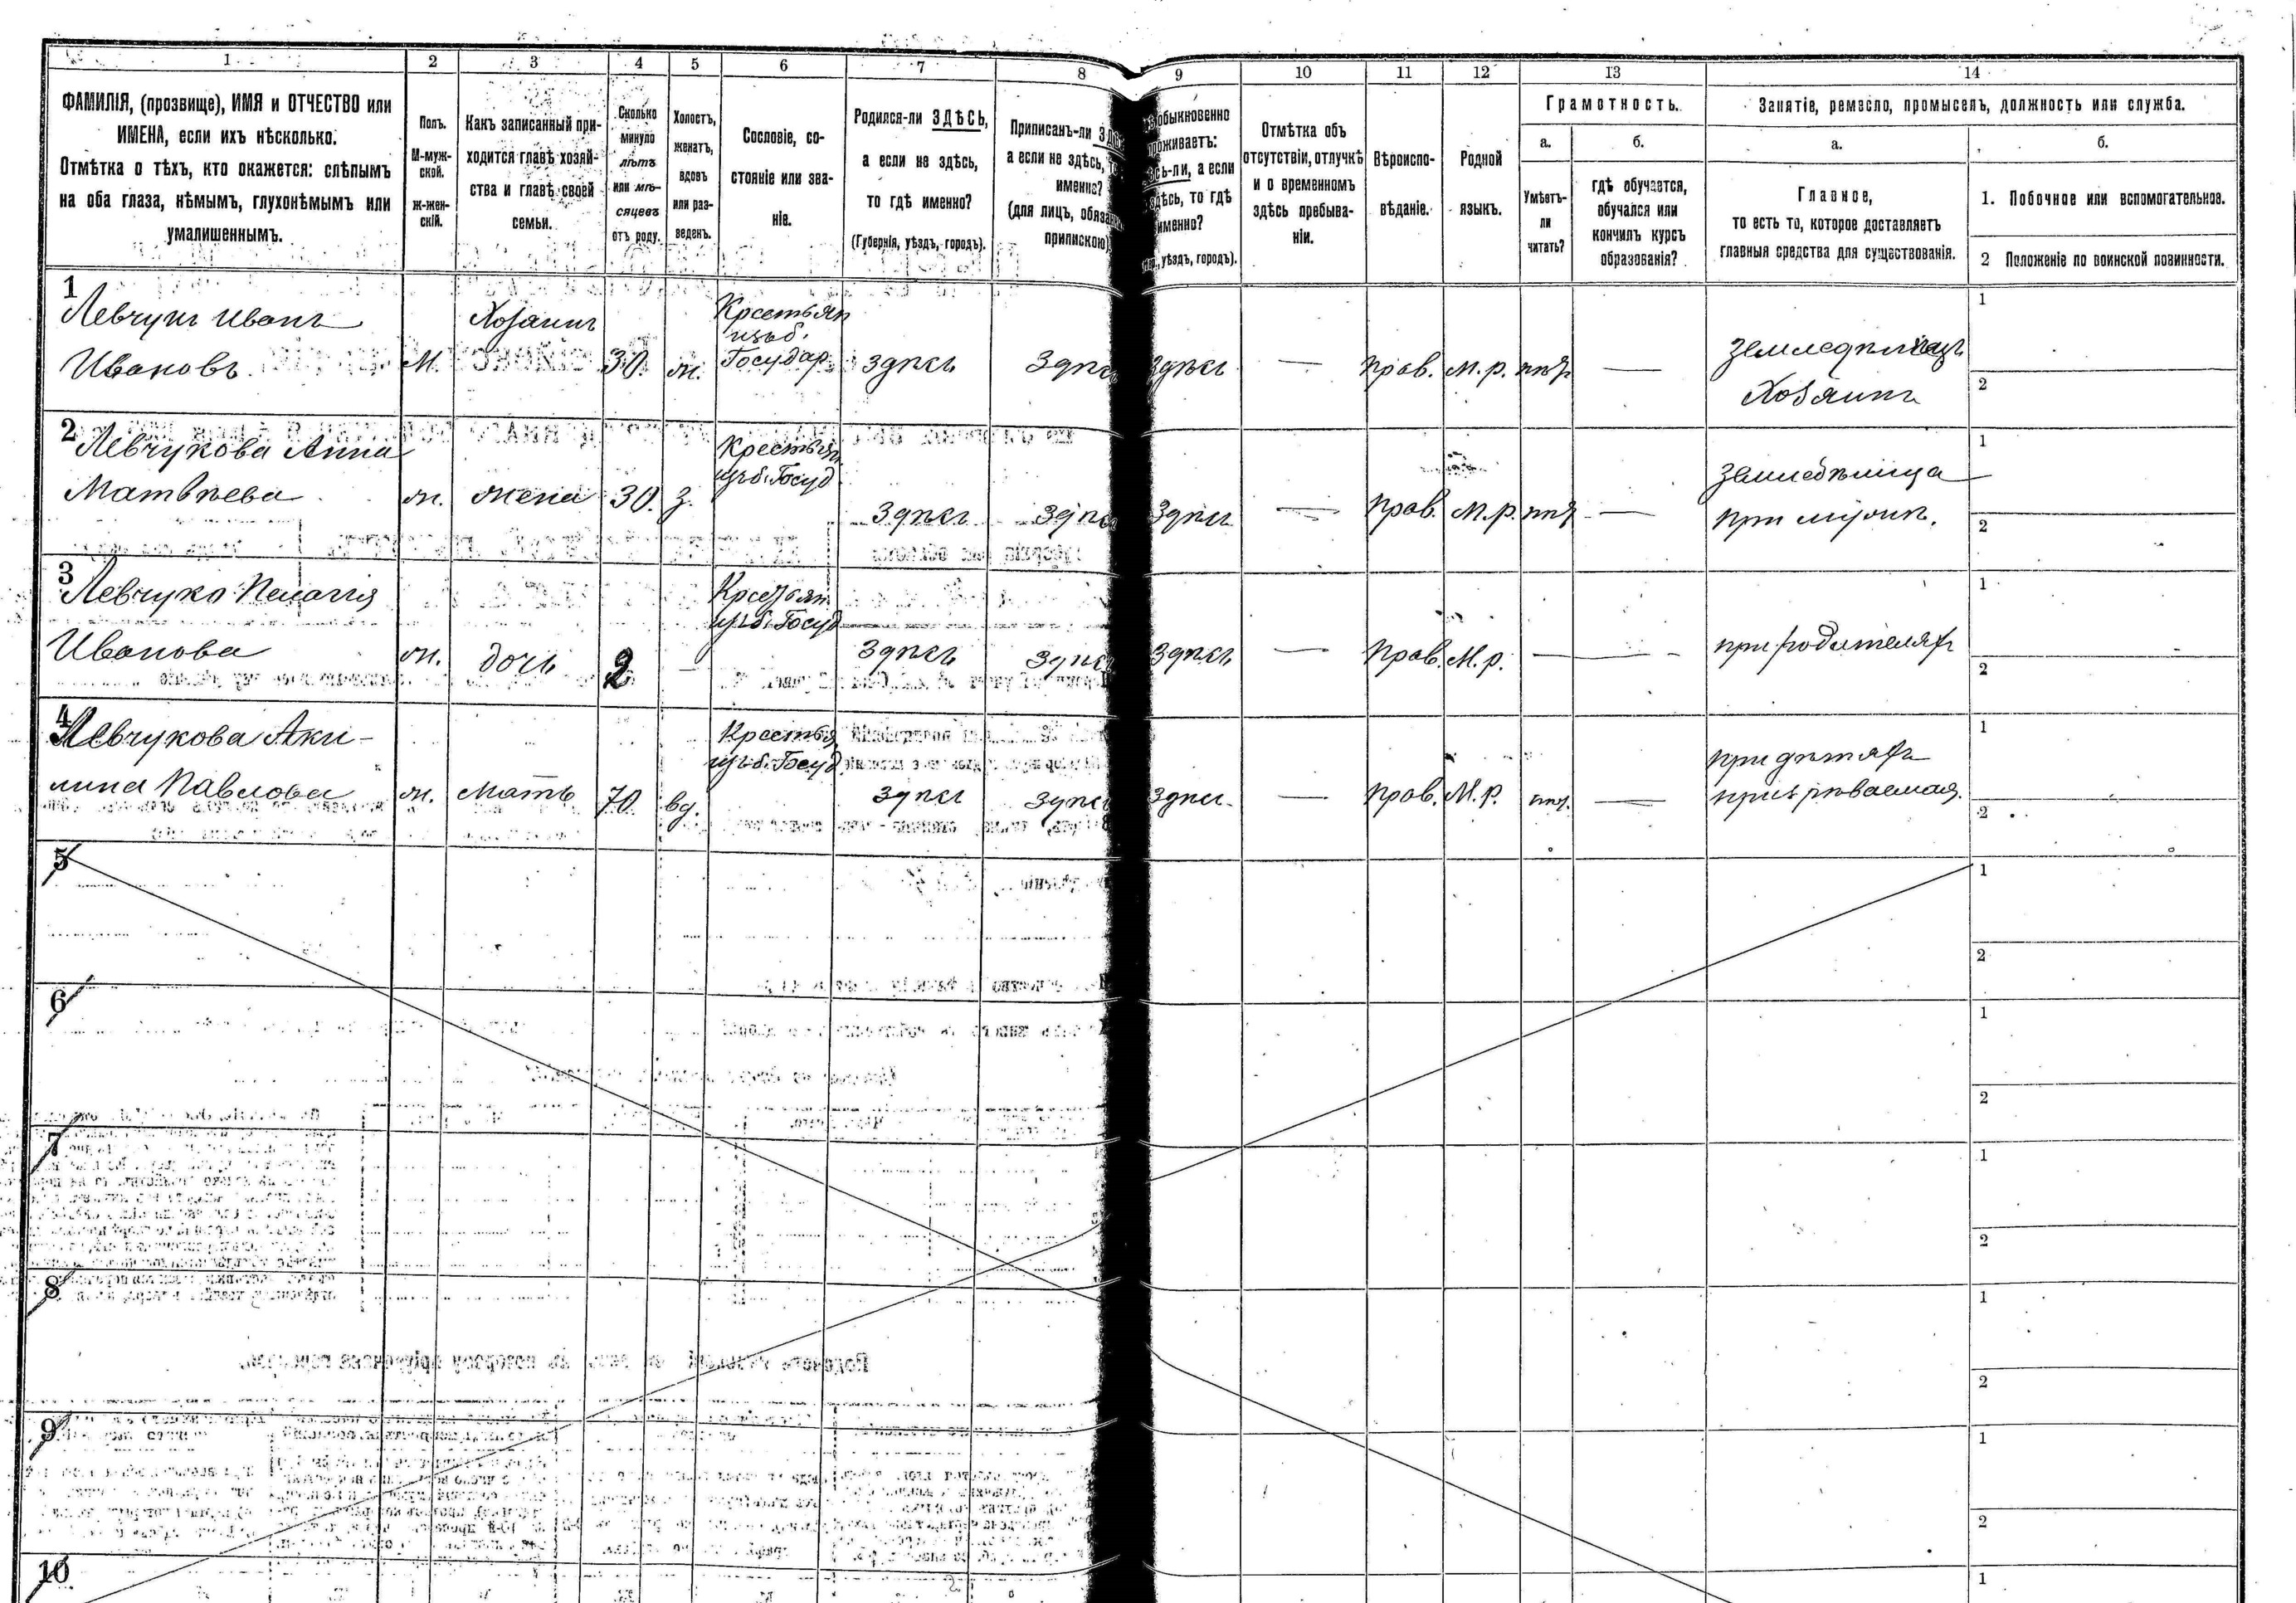 1 2 3 4 5 6 7 8 9 10 11 12 13 14
ФАМИЛІЯ, (прозвище), ИМЯ и ОТЧЕСТВО или
ИМЕНА, если ихъ нѣсколько.
Отмѣтка о тѣхъ, кто окажется: слѣпымъ
на оба глаза, нѣмымъ, глухонѣмымъ или
умалишеннымъ.
Полъ.
М-муж-
ской.
Ж-жен-
скій.
Какъ записанный при-
ходится главѣ хозяй-
ства и главѣ своей
семьи.
Сколько
минуло
лѣтъ
или мѣ-
сяцевъ
отъ роду.
Холостъ,
женатъ,
вдовъ
или раз-
веденъ.
Сословіе, со-
стояніе или зва-
ніе.
Родился-ли ЗДѢСЬ,
а если не здѣсь,
то гдѣ именно?
(Губернія, уѣздъ, городъ).
Приписанъ-ли
а если не здѣсь,
именно?
(для лицъ,
припискою)
обыкновенно
проживаетъ:
а если
здѣсь, то гдѣ
именно?
уѣздъ, городъ).
Отмѣтка объ
отсутствіи, отлучкѣ
и о временномъ
здѣсь пребыва-
ніи.
Вѣроиспо-
вѣданіе.
Родной
языкъ.
Грамотность.
а.
Умѣетъ-
ли
читать?
б.
гдѣ обучается,
обучался или
кончилъ курсъ
образованія?
Занятіе, ремесло, промыселъ, должность или служба.
а.
Главное,
то есть то, которое доставляетъ
главныя средства для существованія.
б.
1. Побочное или вспомогательное.
2 Положеніе по воинской повинности.
1
Левчукъ Иванъ
Ивановъ М. Хозяинъ 30. ж. Крестьян
изъ б.
Государ. здѣсь Здѣ здѣсь — Прав. М. р. нѣт — Земледѣлецъ
Хозяинъ
1
2
2
Левчукова Анна
Матвѣева ж. жена 30. з. Крестьян
изъ б. Госуд здѣсь здѣ здѣсь — Прав. М. р. нѣт — земледѣлица
при мужѣ.
1
2
3
Левчуко Пелагія
Иванова ж. дочь 2 — Крестьян
изъ б. Госуд здѣсь здѣс здѣсь — Прав. М. р. — — при родителях
1
2
4
Левчукова Аки-
лина Павлова ж. мать 70 вд. Крестья
изъ б. Госуд здѣсь здѣс здѣсь — Прав. М. р. нѣт. — при дѣтяхъ
призрѣваемая.
1
2
5
1
2
6
1
2
7
1
2
8
1
2
9
1
2
10
1